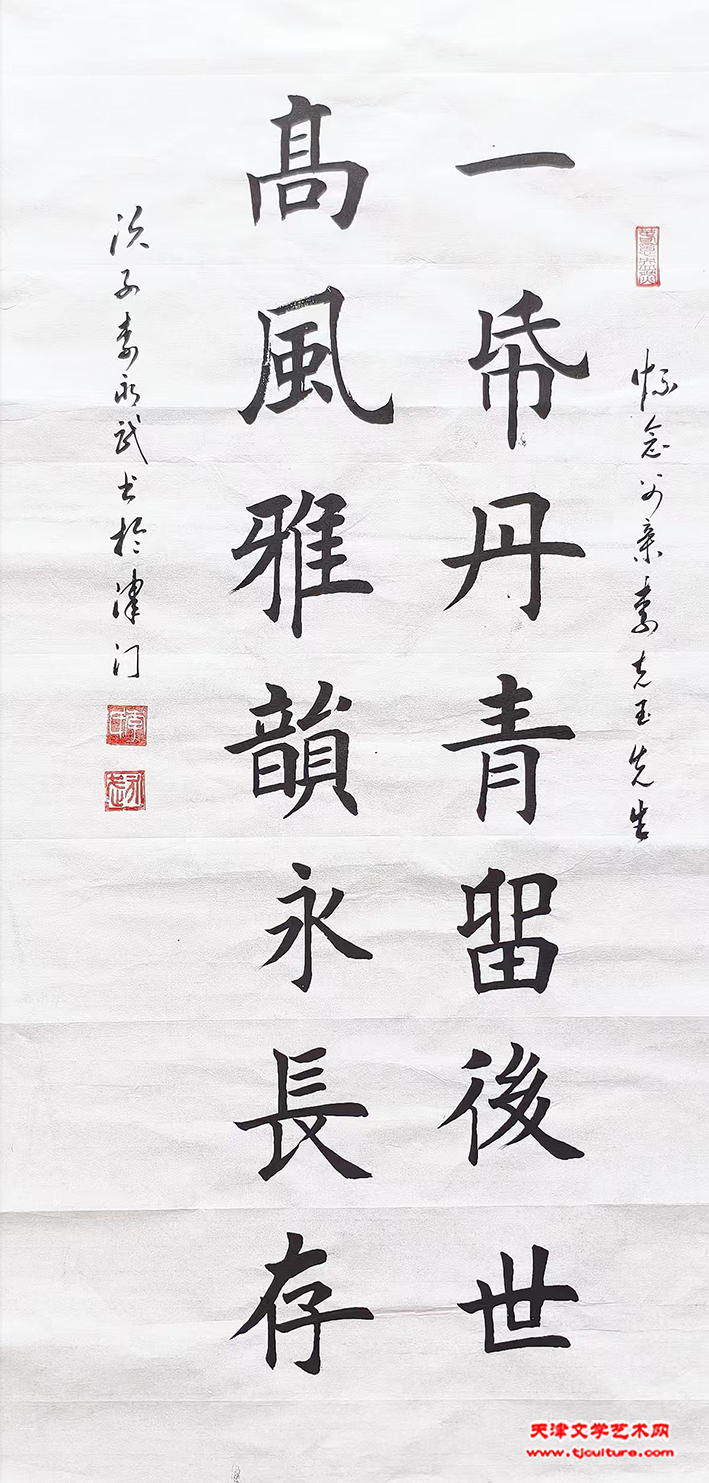 懷念父亲李克玉先生
一帋丹青畱後世
髙風雅韻永長存
次子李永武书於津门
天津文学艺术网
www.tjculture.com